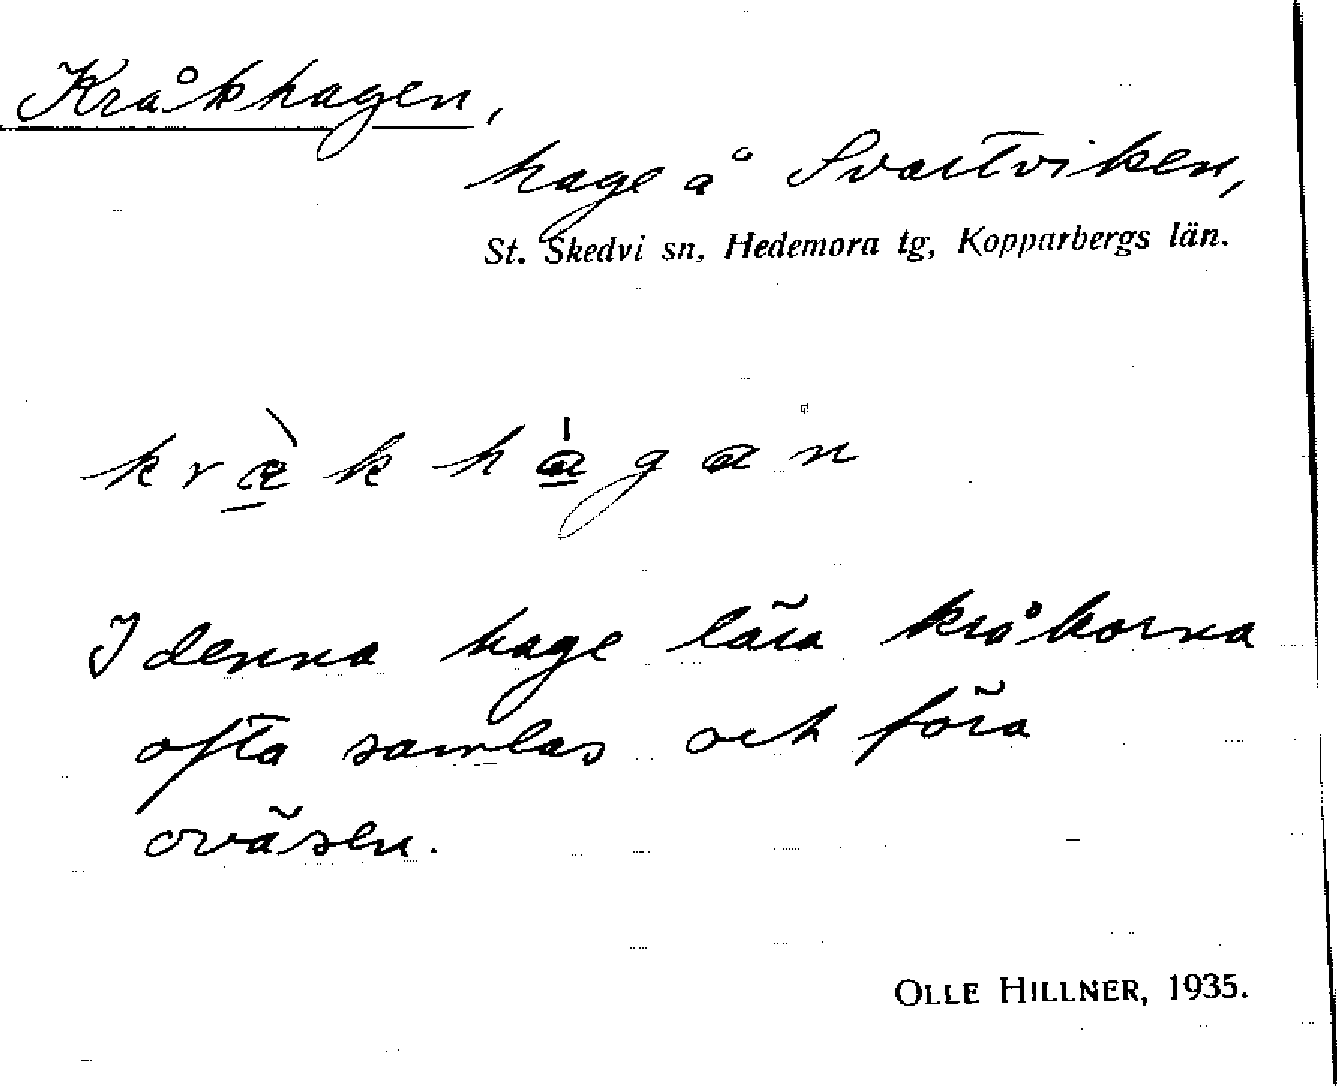 Kråkhagen,
hage å Svartviken,
St. Skedvi sn, Hedemora tg, Kopparbergs län.
I denna hage lära kråkorna
ofta samlas och föra
oväsen.
OLLE HILLNER, 1935.